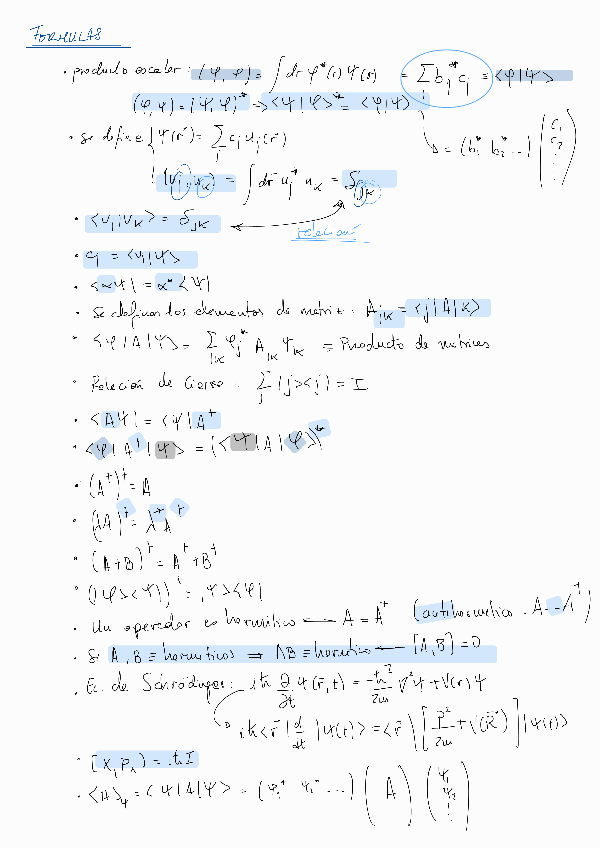 FORMULAS
• producto escalar: (φ, ψ) = ∫ dr φ*(r) ψ(r) = Σ b_j* c_j = <φ|ψ>
(φ,ψ) = (ψ,φ)* → <ψ|φ>* = <φ|ψ>
→ = (b₁* b₂* ...) (c₁ c₂ ⋮)
• Se define { ψ(r̄) = Σ c_j u_j(r̄)
(u_j, u_k) = ∫ dr̄ u_j* u_k = δ_jk
• <u_j|u_k> = δ_jk
relación
• c_j = <u_j|ψ>
• <αψ| = α* <ψ|
• Se definen los elementos de matriz: A_jk = <j|A|k>
• <φ|A|ψ> = Σ_jk φ_j* A_jk ψ_k = Producto de matrices
• Relación de Cierre: Σ_j |j><j| = I
• <Aψ| = <ψ|A⁺
• <φ|A⁺|ψ> = (<ψ|A|φ>)*
• (A⁺)⁺ = A
• (λA)⁺ = λ* A⁺
• (A+B)⁺ = A⁺ + B⁺
• (|φ><ψ|)⁺ = |ψ><φ|
• Un operador es hermítico ⟵ A = A⁺ (antihermítico: A = -A⁺)
• Si A, B ≡ hermíticos ⇒ AB ≡ hermítico ⟵ [A,B] = 0
• Ec. de Schrödinger: iħ ∂/∂t ψ(r̄,t) = -ħ²/2m ∇²ψ + V(r)ψ
→ iħ <r̄| d/dt |ψ(t)> = <r̄| [P̄²/2m + V(R̄)] |ψ(t)>
• [X, Pₓ] = iħI
• <A>_ψ = <ψ|A|ψ> = (ψ₁* ψ₂* ...) (A) (ψ₁ ψ₂ ⋮)